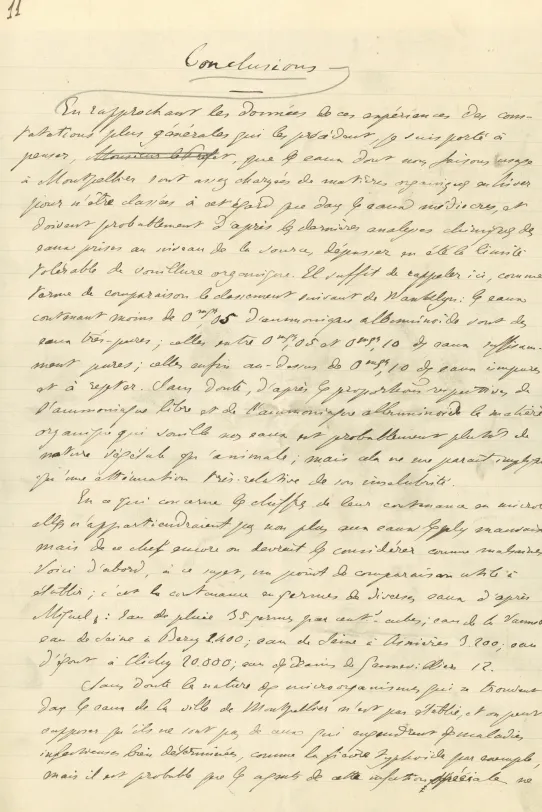 11
Conclusions
En rapprochant les données de ces expériences des cons-
tatations plus générales qui les précèdent, je suis porté à
penser, Monsieur le Préfet, que les eaux dont nous faisons usage
à Montpellier sont assez chargées de matières organiques en hiver
pour n'être classées à cet égard que dans les eaux médiocres, et
doivent probablement d'après les dernières analyses chimiques des
eaux prises au niveau de la source, dépasser en été la limite
tolérable de souillure organique. Il suffit de rappeler ici, comme
terme de comparaison le classement suivant de Wanklyn: les eaux
contenant moins de 0mgr,05 d'ammoniaque albuminoïde sont des
eaux très-pures; celles entre 0mgr,05 et 0mgr,10 des eaux suffisam-
ment pures; celles enfin au-dessus de 0mgr,10 des eaux impures
et à rejeter. Sans doute, d'après les proportions respectives de
l'ammoniaque libre et de l'ammoniaque albuminoïde la matière
organique qui souille nos eaux est probablement plutôt de
nature végétale qu'animale; mais cela ne me paraît impliquer
qu'une atténuation très-relative de son insalubrité.
En ce qui concerne les chiffres de leur contenance en micro
elles n'appartiendraient pas non plus aux eaux les plus mauvaises
mais de ce chef encore on devrait les considérer comme malsaines
Voici d'abord, à ce sujet, un point de comparaison utile à
établir; c'est la contenance en germes de diverses eaux d'après
Miquel: Eau de pluie 35 germes par cent. cubes; eau de la Vanne
eau de Seine à Bercy 1.400; eau de Seine à Asnières 3.200; eau
d'égout à Clichy 20.000; eau de drains de Gennevilliers 12.
Sans doute la nature des microorganismes qui se trouvent
dans les eaux de la ville de Montpellier n'est pas établie, et on peut
supposer qu'ils ne sont pas de ceux qui engendrent des maladies
infectieuses bien déterminées, comme la fièvre typhoïde par exemple,
mais il est probable que les agents de cette infection spéciale ne